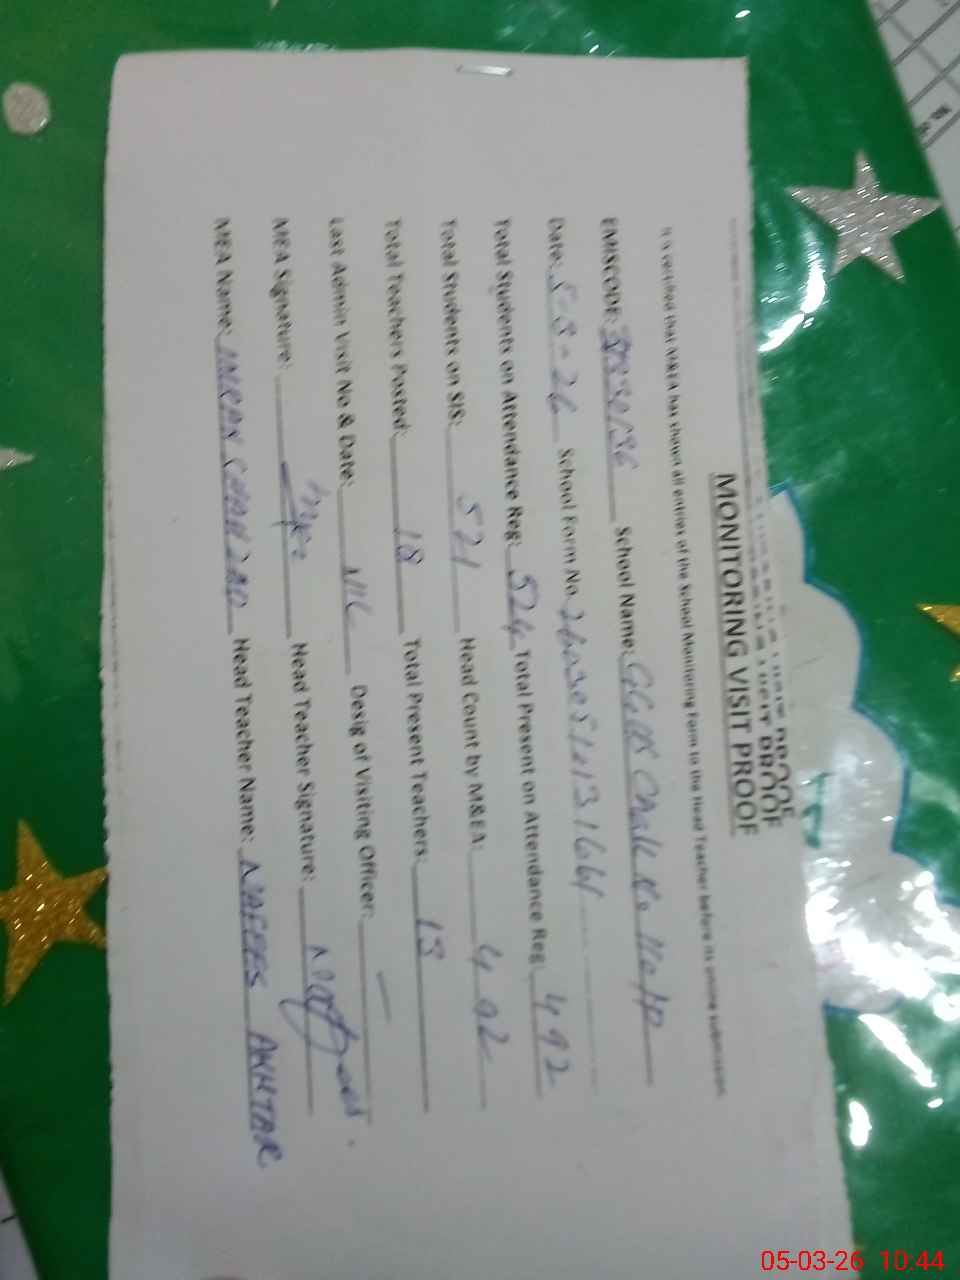 MONITORING VISIT PROOF
It is certified that M&EA has shown all entries of the School Monitoring Form to the Head Teacher before its online submission.
EMISCODE: School Name: GGHS Chak No
Date: 5-3-26 School Form No.
Total Students on Attendance Reg: 524 Total Present on Attendance Reg: 492
Total Students on SIS: 521 Head Count by M&EA: 492
Total Teachers Posted: 18 Total Present Teachers: 13
Last Admin Visit No & Date: NIL Desig of Visiting Officer: —
MEA Signature: Head Teacher Signature: Nafees
MEA Name: Head Teacher Name: NAFEES AKHTAR
05-03-26 10:44